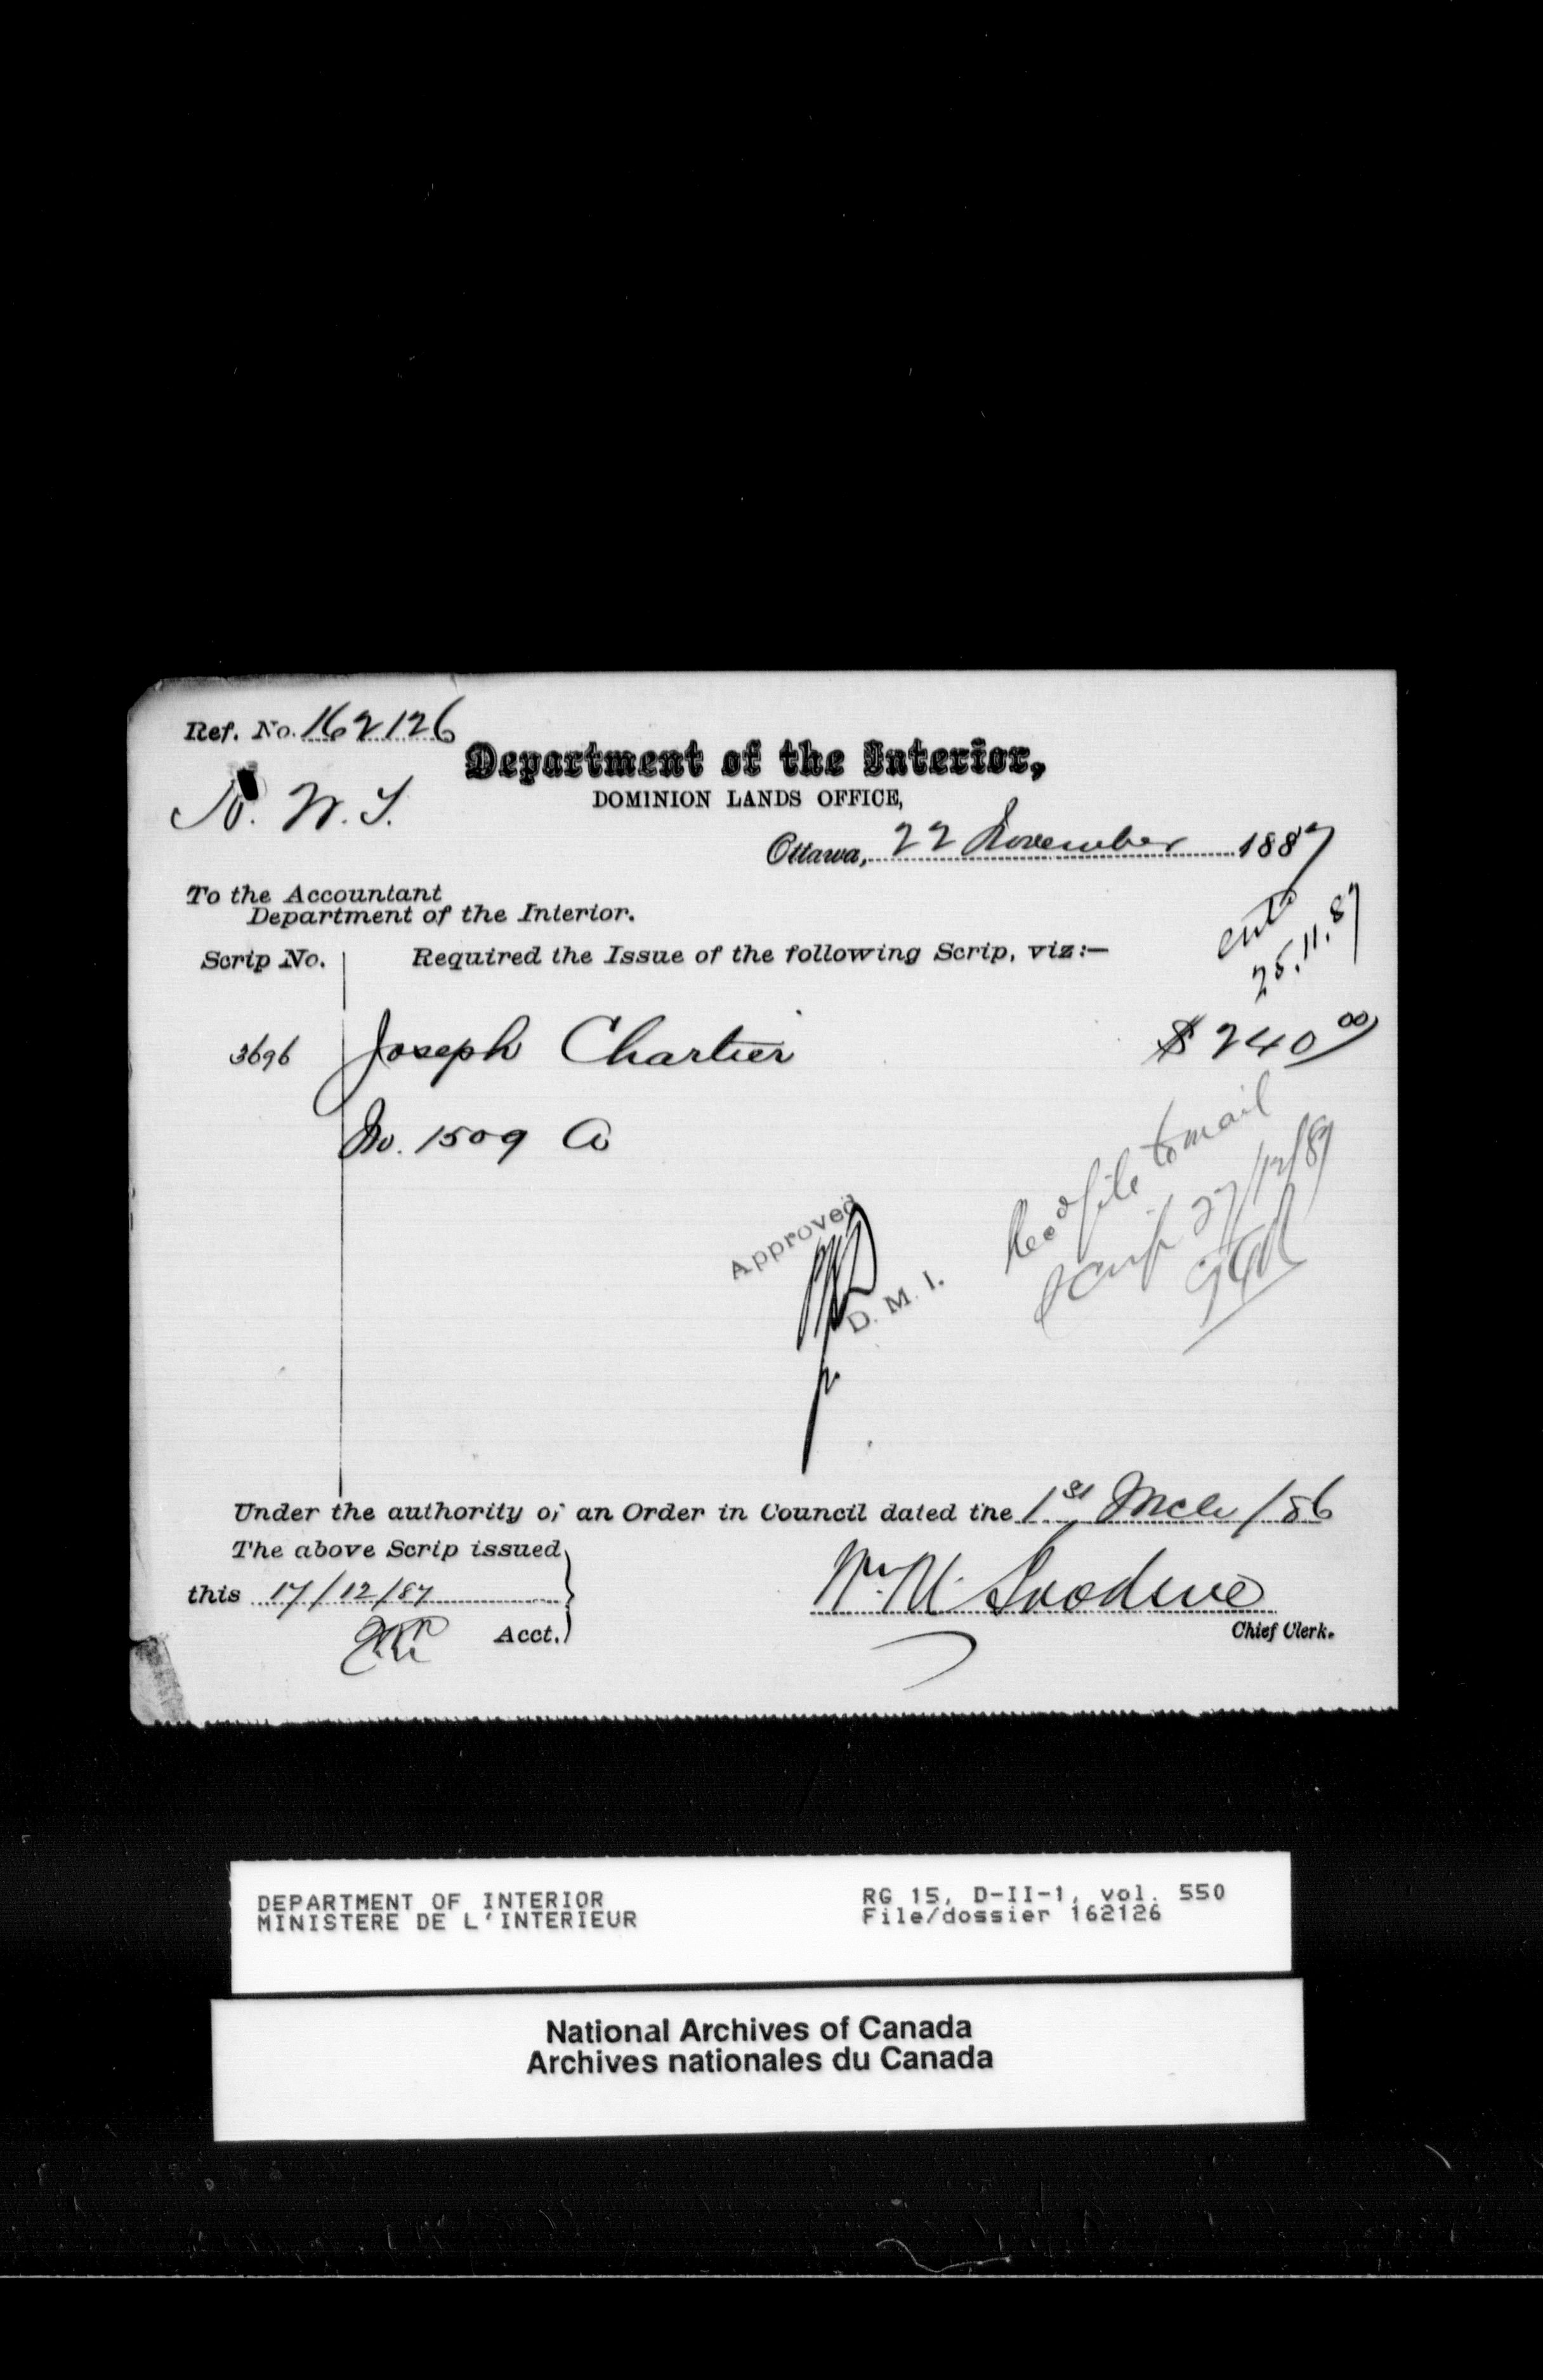 Ref. No. 162126
Department of the Interior,
N. W. T.
DOMINION LANDS OFFICE,
Ottawa, 22 November 1887
To the Accountant
Department of the Interior.
entd
25.11.87
Scrip No. Required the Issue of the following Scrip, viz:—
3696 Joseph Chartier $240 00
No. 1509 A
Recd file to mail
scrip 27/12/87
Approved
D. M. I.
Under the authority of an Order in Council dated the 1st Mch /86
The above Scrip issued
this 17/12/87
Acct.
Chief Clerk.
DEPARTMENT OF INTERIOR
MINISTERE DE L'INTERIEUR
RG 15, D-II-1, vol. 550
File/dossier 162126
National Archives of Canada
Archives nationales du Canada